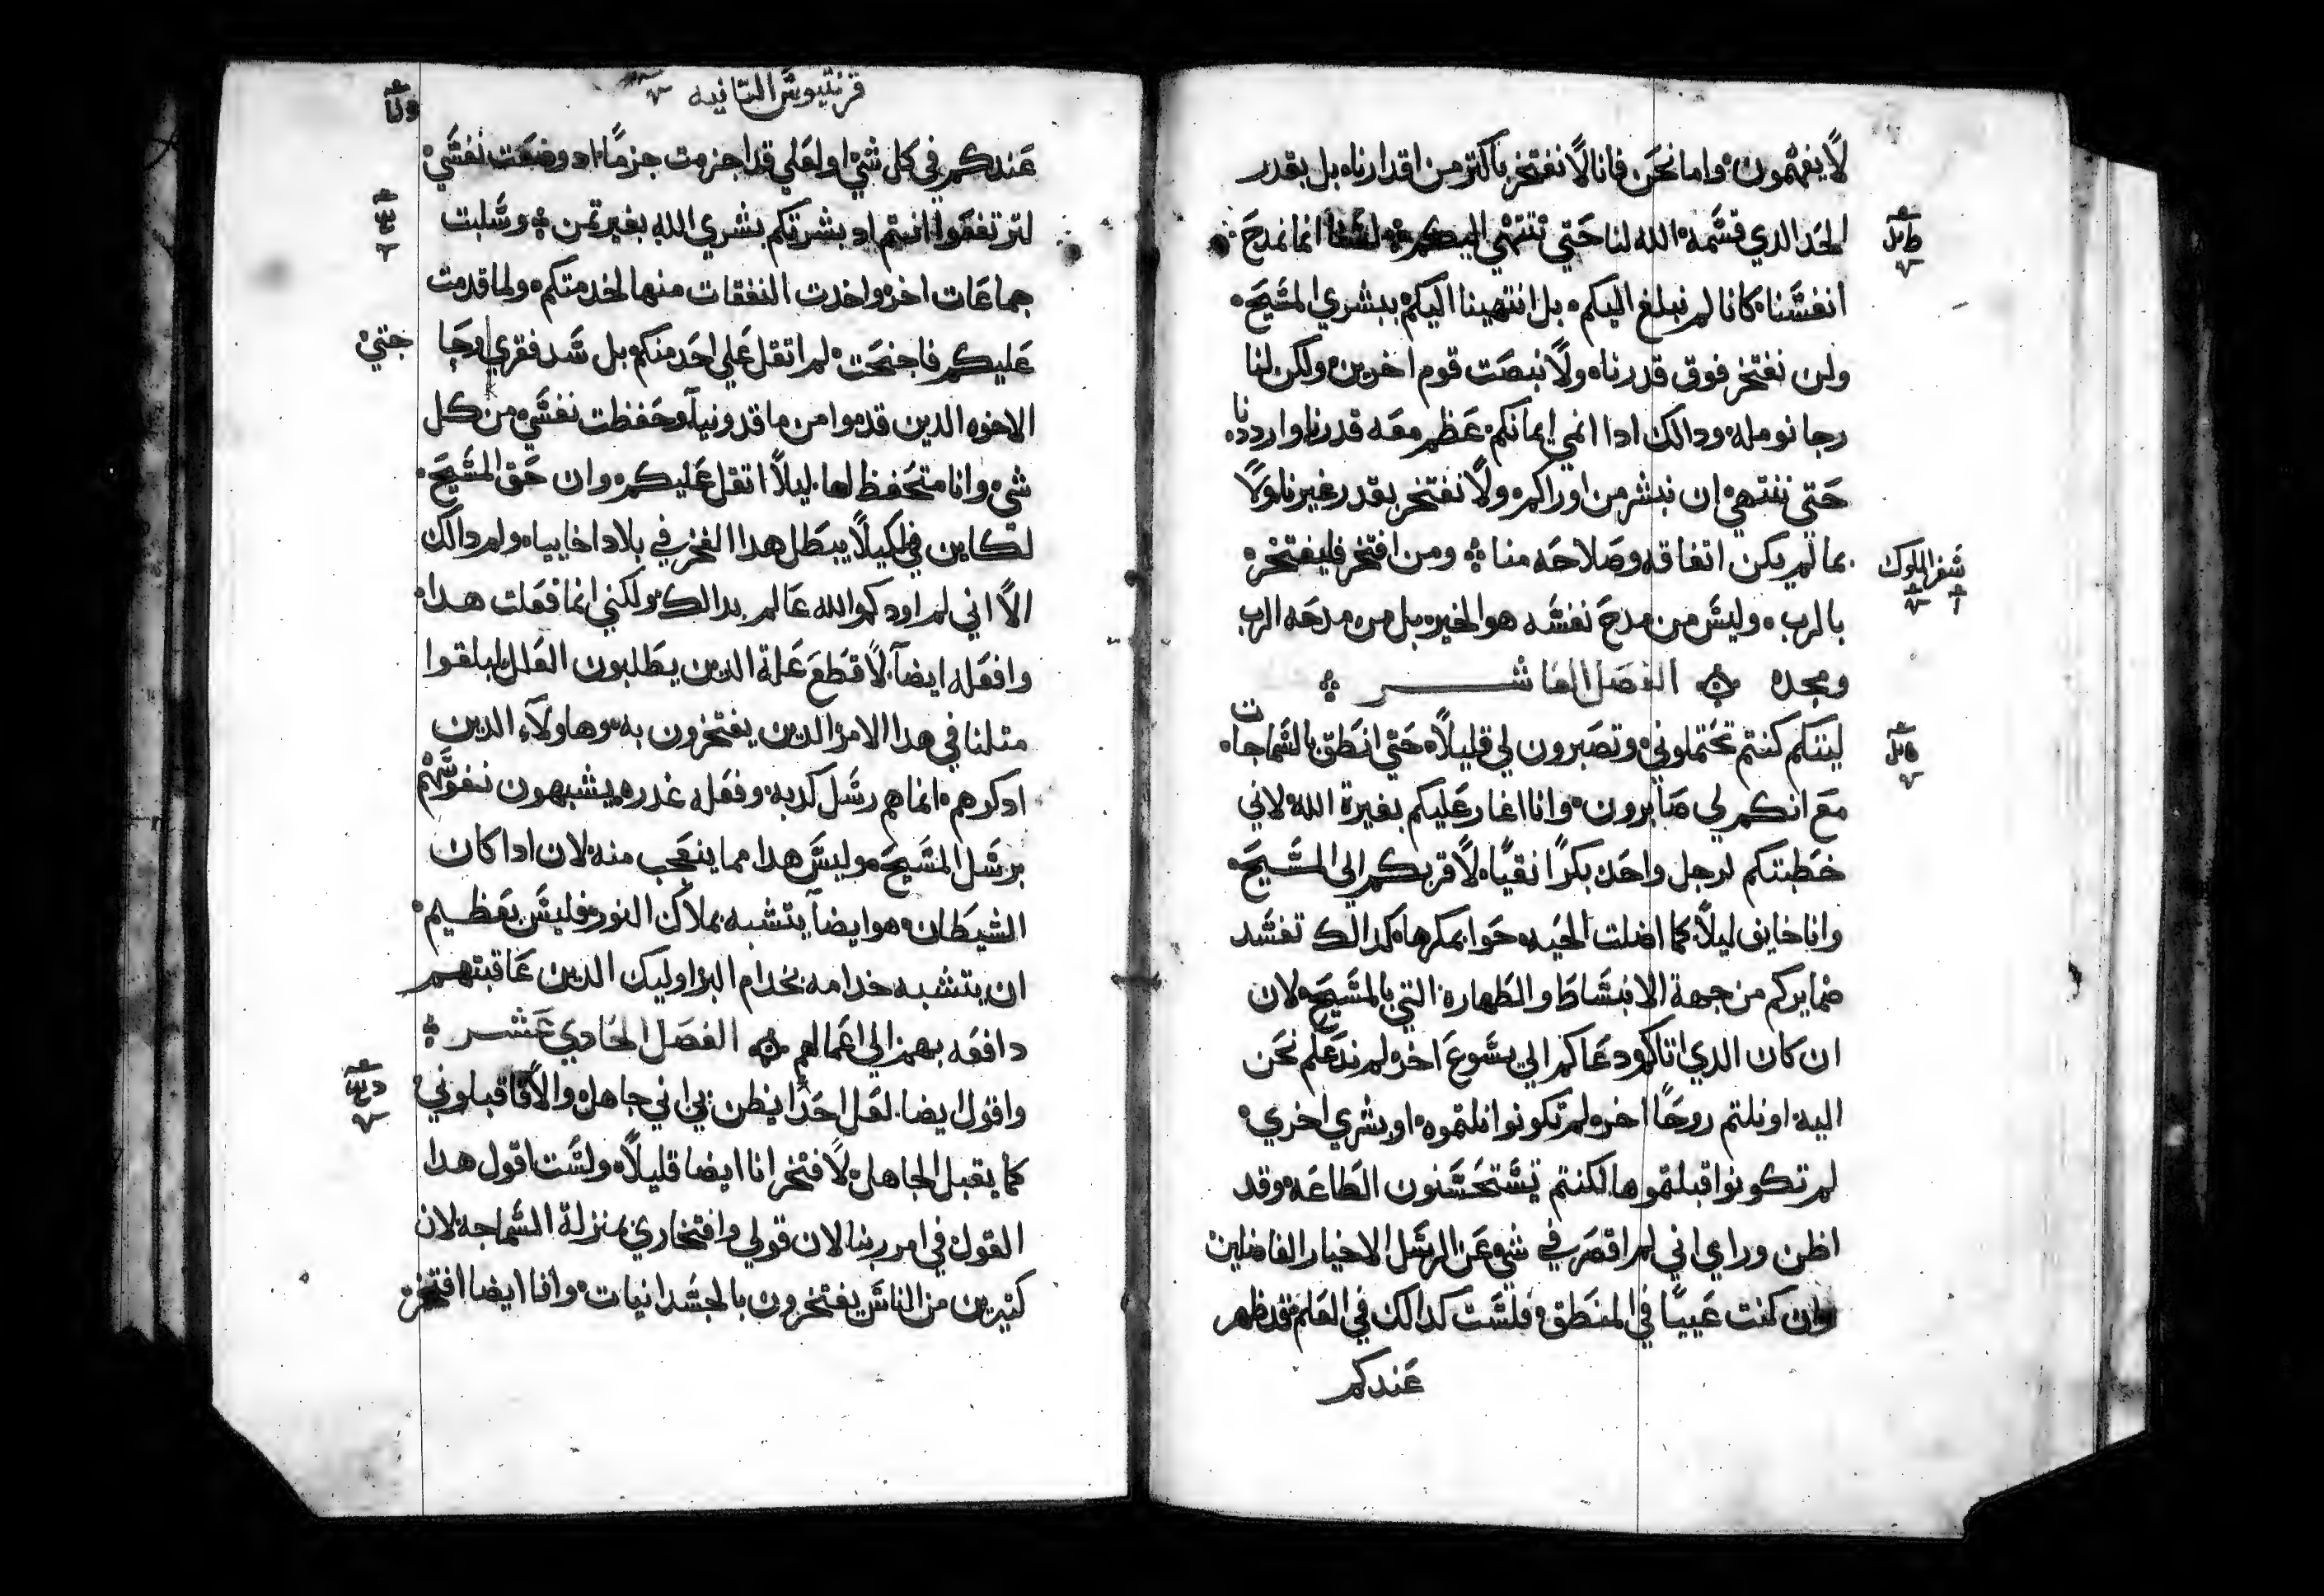 لا يفهمون وامانحن فانا لا نفتخر باكتر من اقدارنا بل بقدر
الحد الدي قسمه الله لنا حتي ننتهي اليكم لسنا انما نمدح
انفسنا كانا لم نبلغ اليكم بل انتهينا اليكم ببشري المسيح
ولن نفتخر فوق قدرنا ولا بنصت قوم اخرين ولكن لنا
رجا نومله ودالك ادا انمي ايمانكم عظم معه قدرنا وازددنا
حتي ننتهي ان نبشر من اوراكم ولا نفتخر بقدر غيرنا ولا
بما لم يكن اتفاقه وصلاحه منا ومن افتخر فليفتخر
سفر الملوك
بالرب وليس من مدح نفسه هو الخير بل من مدحه الرب
ومجده الفصل العاشر
ليتكم كنتم تحتملوني وتصبرون لي قليلا حتي انطق بالسماجات
مع انكم لي صابرون وانا اغار عليكم بغيرة الله لاني
خطبتكم لرجل واحد بكرا نقيا لاقربكم الي المسيح
وانا خايف ليلا كما اضلت الحيه حوا بمكرها كدالك تفسد
ضمايركم من جهة الانبساط والطهارة التي بالمسيح لان
ان كان الدي اتاكم ودعاكم الي يسوع اخر لم ندعكم نحن
اليه او نلتم روحا اخر لم تكونوا نلتموه او بشري اخري
لم تكونوا قبلتموها لكنتم تستحسنون الطاعه وقد
اظن وراي اني لم اقصر في شي عن الرسل الاخيار الفاضلين
وان كنت عييا في المنطق فلست كدالك في العلم فقد ظهر
عندكم
قرنتيوس التانيه
عندكم في كل شي او لعلي قد اجرمت جرما اد وضعت نفسي
لترتفعوا انتم اد بشرتكم بشري الله بغير تمن وسلبت
جماعات اخر واخدت النفقات منها لخدمتكم ولما قدمت
عليكم فاحتجت لم اتقل علي احد منكم بل سد فقري رجا
الاخوه الدين قدموا من ماقدونيا وحفظت نفسي من كل
شي وانا متحفظ لها ليلا اتقل عليكم وان حق المسيح
لكاين في لكيلا يبطل هدا الفخر في بلاد اخاييا ولم دالك
الا اني لم اودكم والله عالم بدالك ولكني انما فعلت هدا
وافعله ايضا لاقطع علة الدين يطلبون العلل ليلقوا
متلنا في هدا الامر الدين يفتخرون به وهاولاء الدين
ادكرهم انما هم رسل كدبه وفعله غدره يشبهون نفوسهم
برسل المسيح وليس هدا مما يتعجب منه لان ادا كان
الشيطان هو ايضا يتشبه بملاك النور فليس بعظيم
ان يتشبه خدامه بخدام البر اوليك الدين عاقبتهم
دافعه بهم الي اعمالهم الفصل الحادي عشر
واقول ايضا لعل احدا يظن بي اني جاهل والا فاقبلوني
كما يقبل الجاهل لافتخر انا ايضا قليلا ولست اقول هدا
القول في امر ربنا لان قولي وافتخاري بمنزلة السماجه لان
كتيرين من الناس يفتخرون بالجسدانيات وانا ايضا افتخر